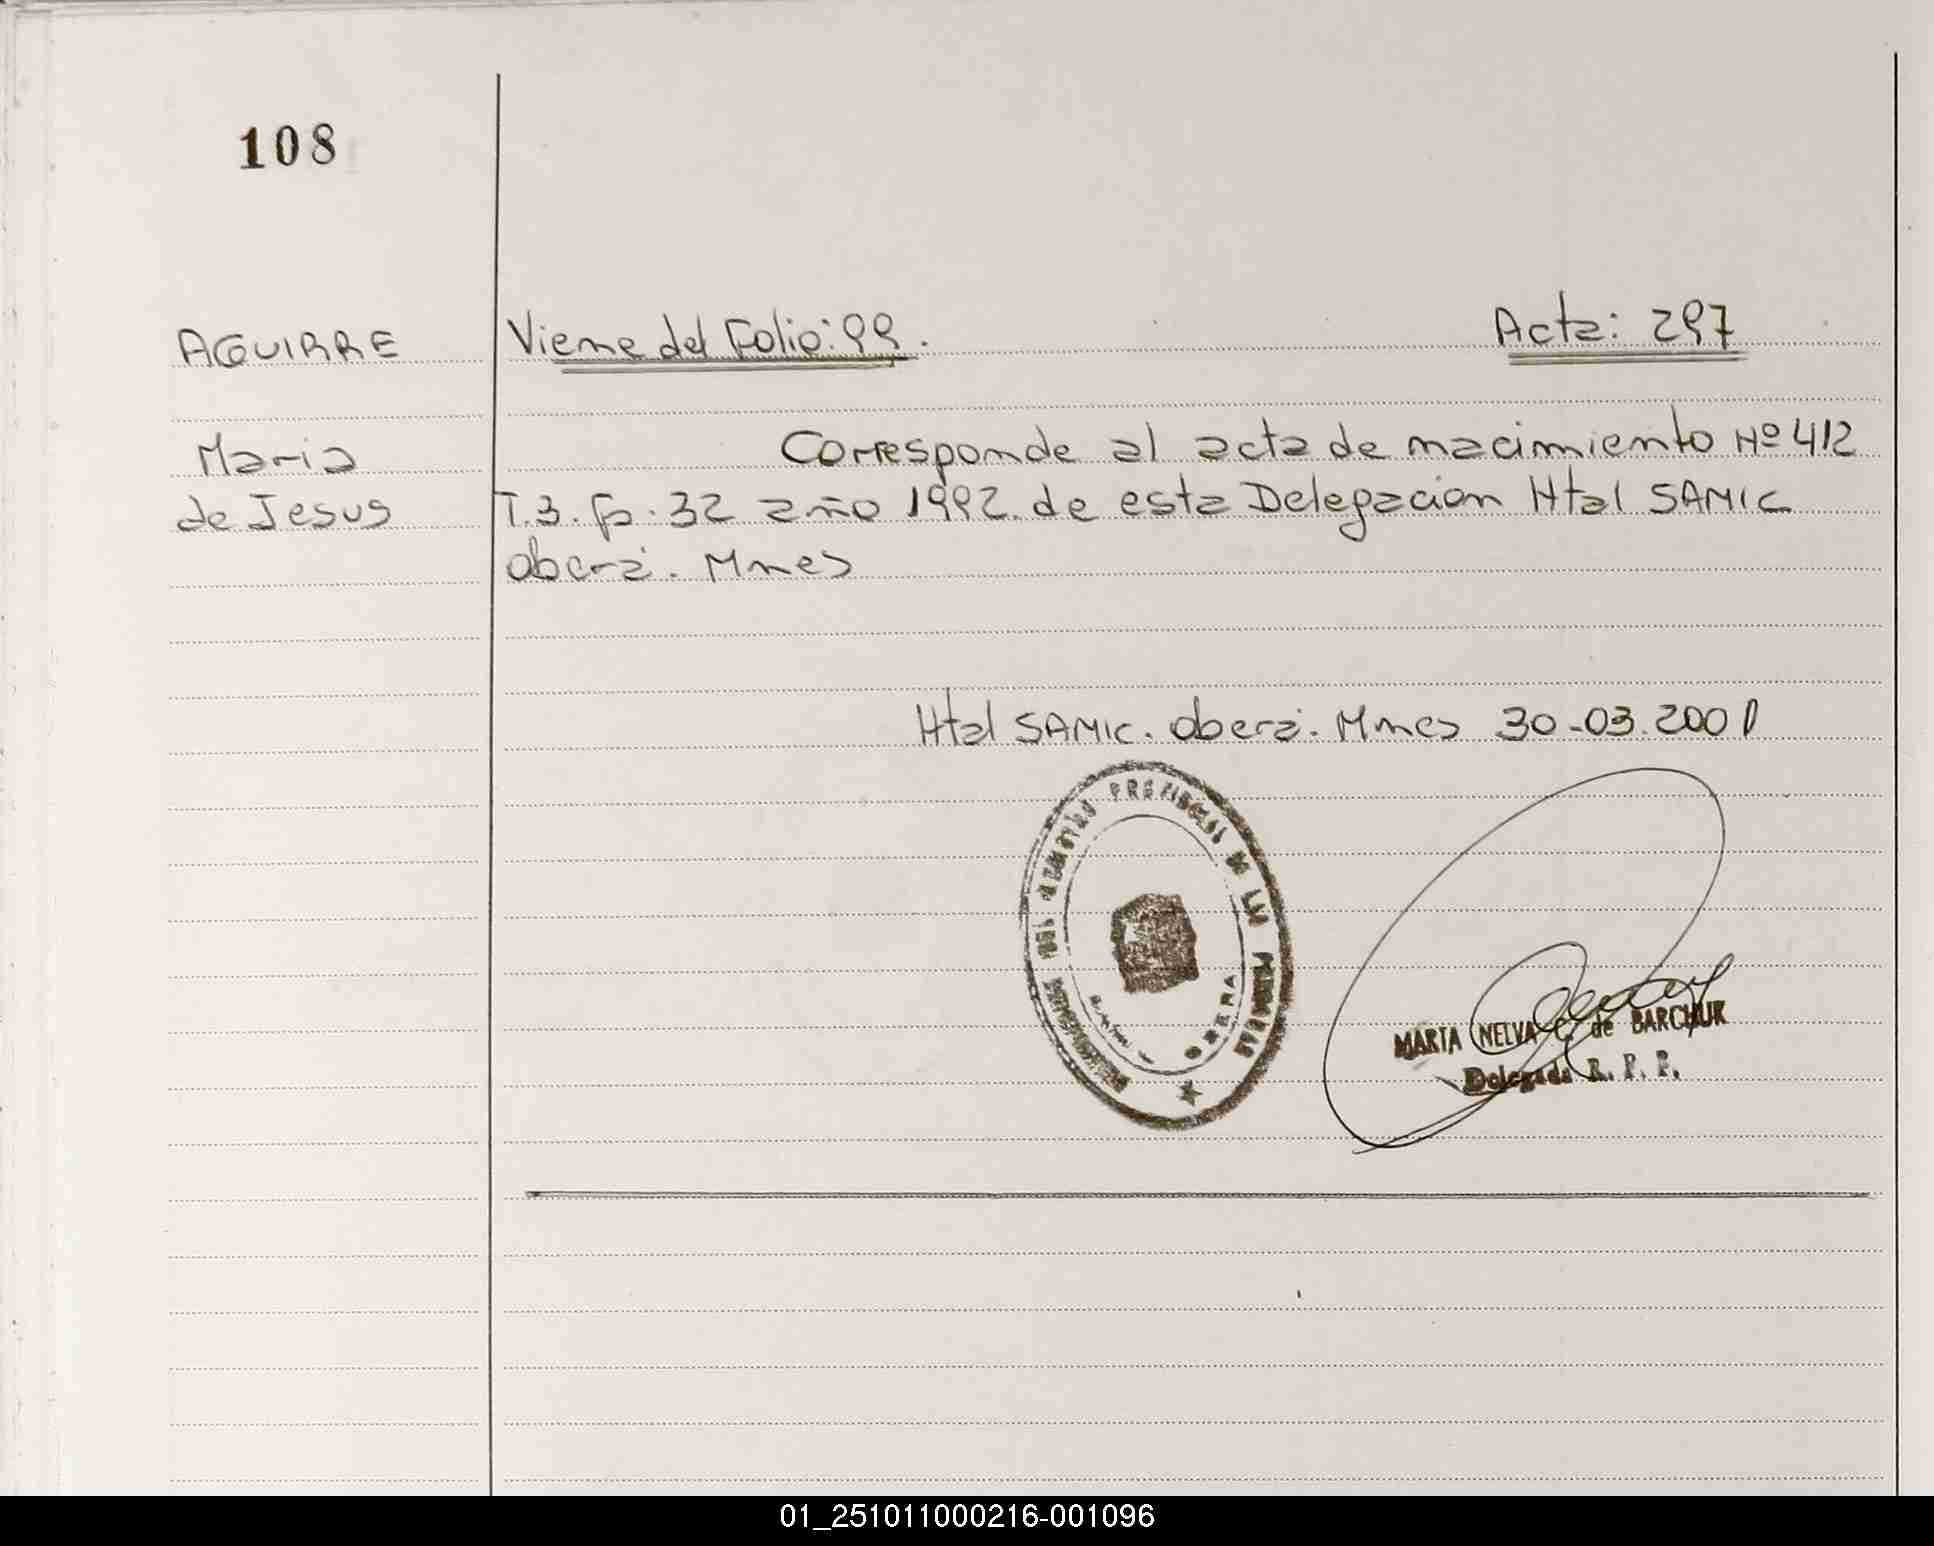 108
AGUIRRE
Viene del Folio: 99.
Acta: 297
Maria
de Jesus
Corresponde al acta de nacimiento Nº 412
T.3. fo. 32 año 1992. de esta Delegacion Htal SAMIC
oberá. Mnes
Htal SAMIC. oberá. Mnes 30-03.2001
DEL REGISTRO PROVINCIAL DE LAS PERSONAS
OBERA
MARIA NELVA C. de BARCHUK
Delegada R. P. P.
01_251011000216-001096